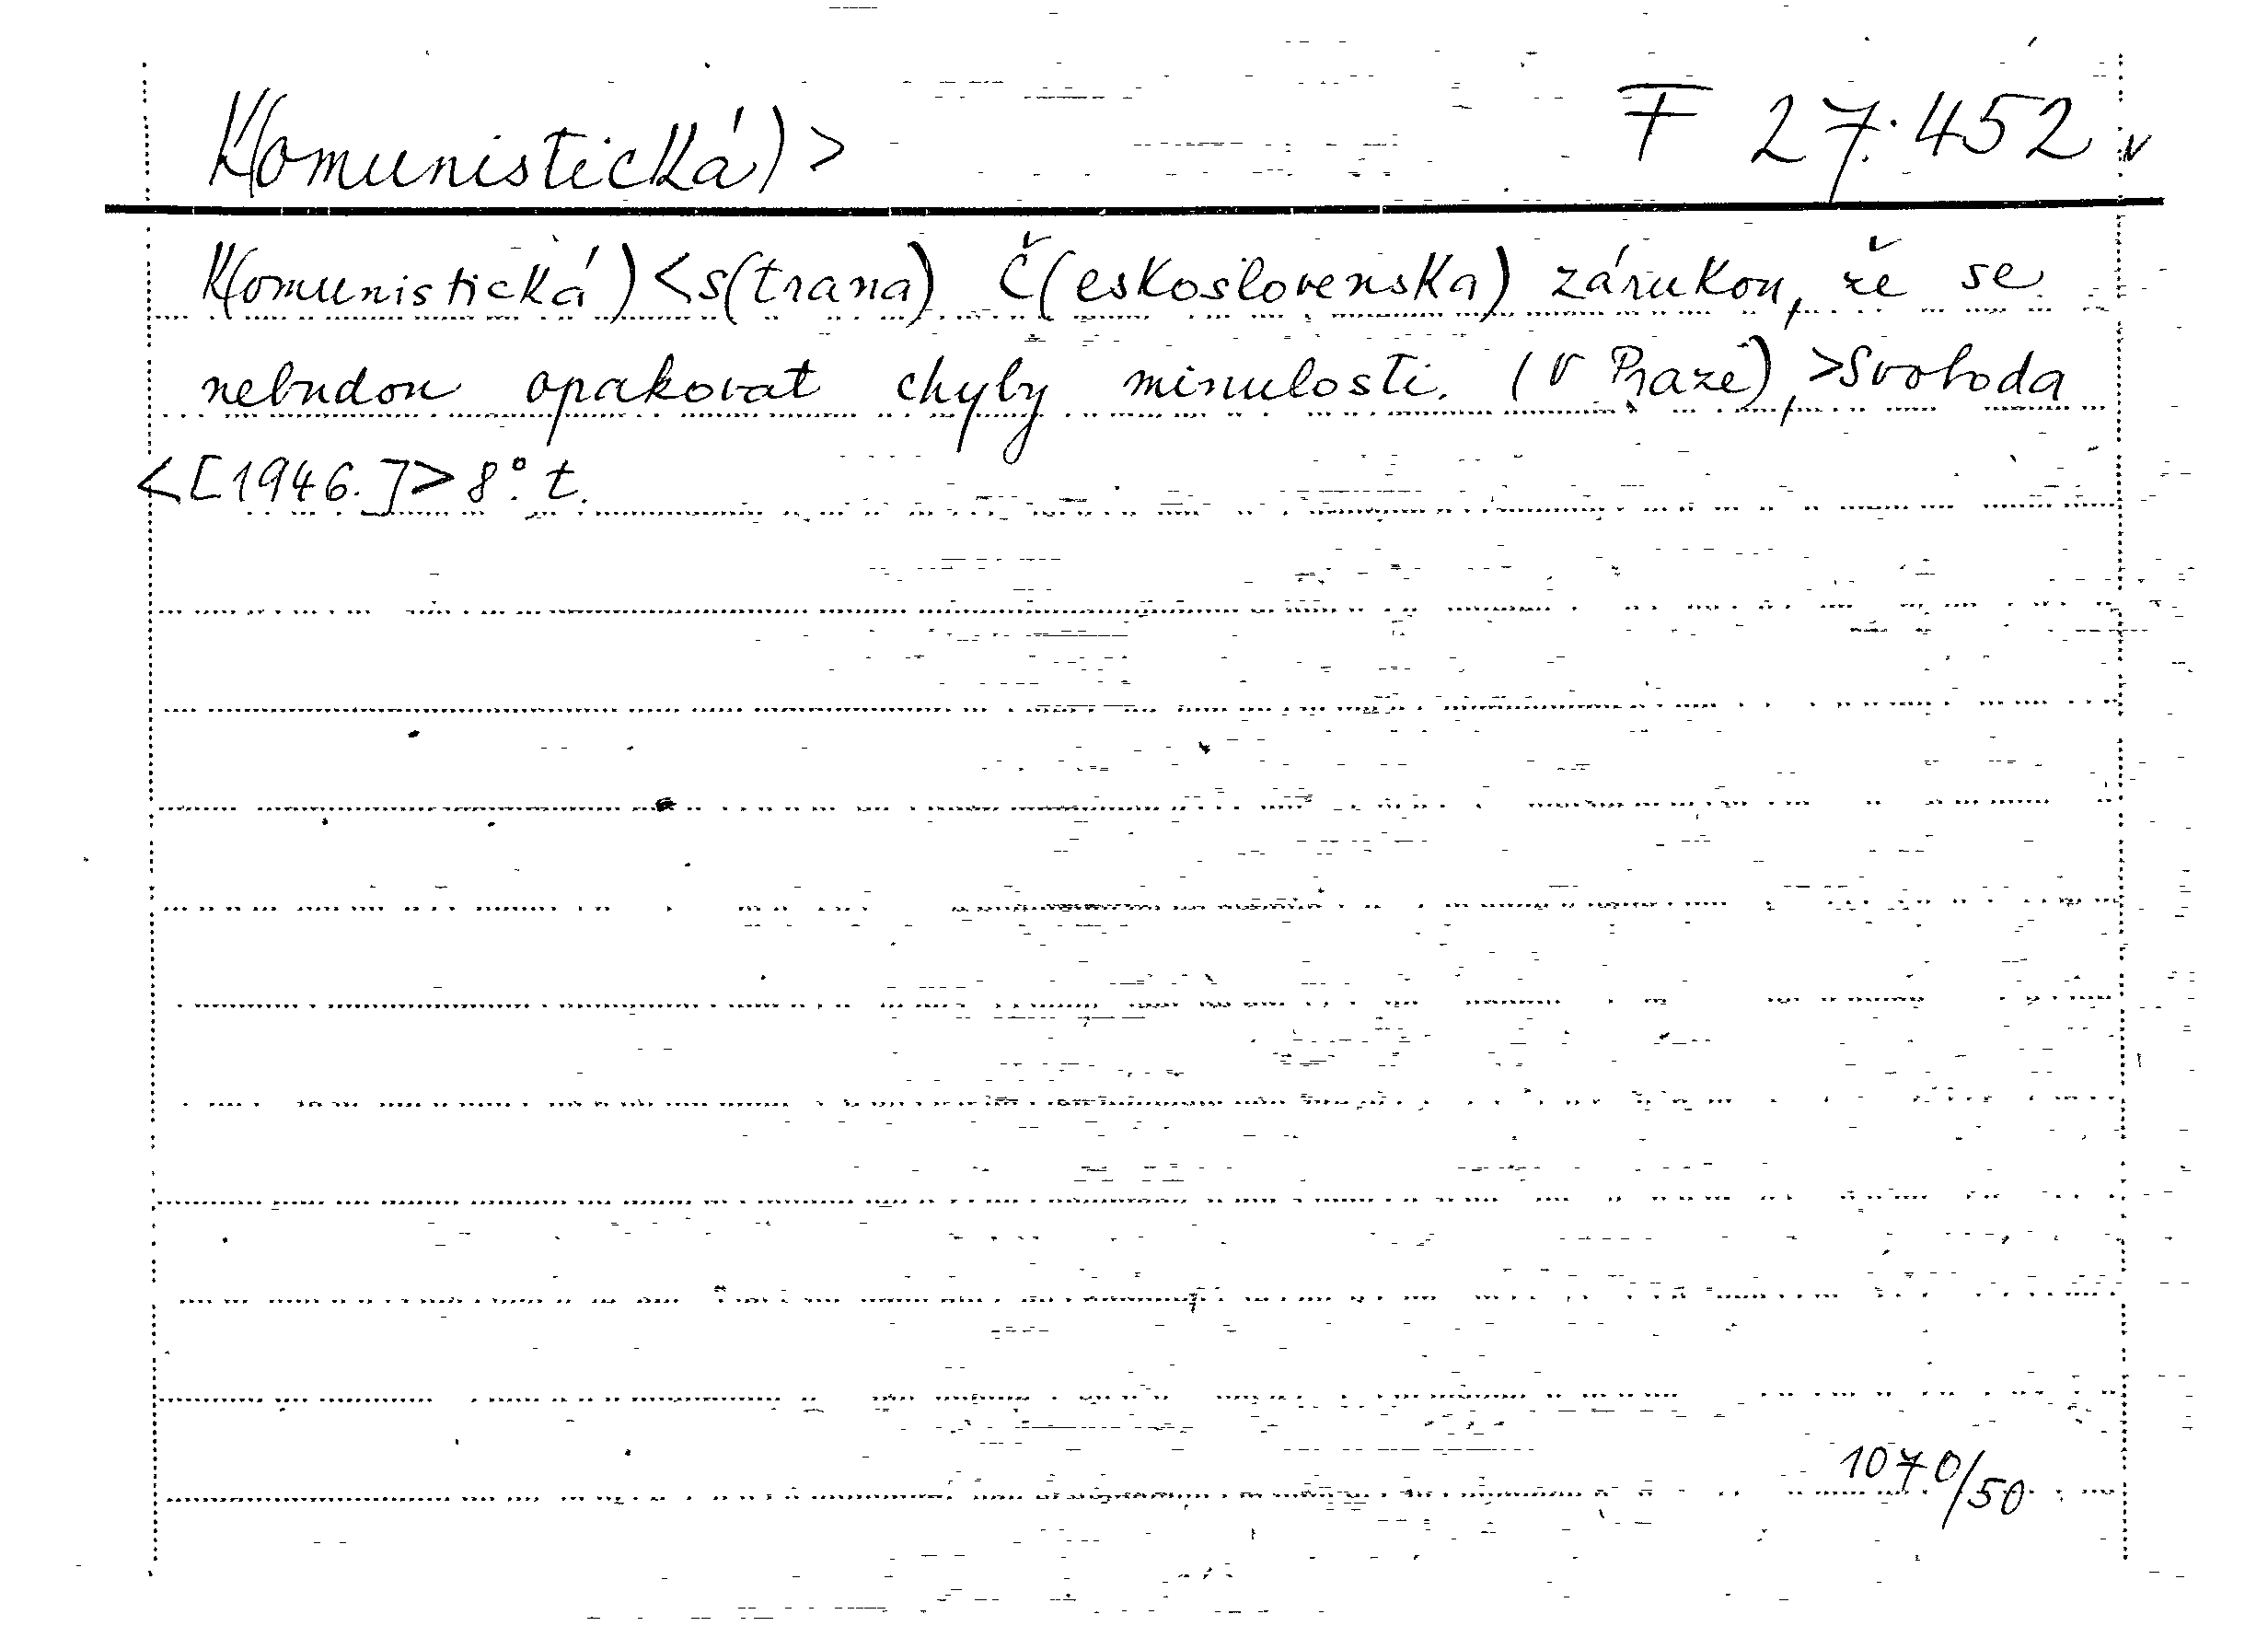 K(omunistická) > F 27.452 v
K(omunistická) < s(trana) Č(eskoslovenska) zárukou, že se
nebudou opakovat chyby minulosti. (V Praze), > Svoboda
< [1946.] > 8°. t.
1070/50